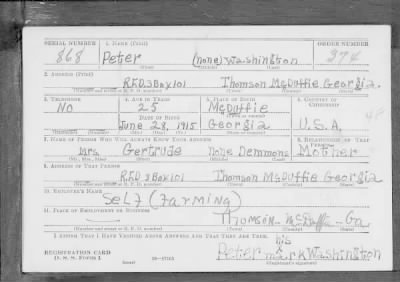 SERIAL NUMBER 1. NAME (Print) ORDER NUMBER
868 Peter (none) Washington 274
(First) (Middle) (Last)
2. ADDRESS (Print)
R.F.D. 3 Box 101 Thomson McDuffie Georgia.
(Number and street or R. F. D. number) (Town) (County) (State)
3. TELEPHONE 4. AGE IN YEARS 5. PLACE OF BIRTH 6. COUNTRY OF CITIZENSHIP
No 25 McDuffie
DATE OF BIRTH
June 28, 1915 Georgia U.S.A.
7. NAME OF PERSON WHO WILL ALWAYS KNOW YOUR ADDRESS 8. RELATIONSHIP OF THAT PERSON
Mrs. Gertrude none Demmons Mother
(Mr., Mrs., Miss) (First) (Middle) (Last)
9. ADDRESS OF THAT PERSON
R.F.D. 3 Box 101 Thomson McDuffie Georgia
(Number and street or R. F. D. number) (Town) (County) (State)
10. EMPLOYER'S NAME
Self (Farming)
11. PLACE OF EMPLOYMENT OR BUSINESS
Thomson - McDuffie - Ga
(Number and street or R. F. D. number) (Town) (County) (State)
I AFFIRM THAT I HAVE VERIFIED ABOVE ANSWERS AND THAT THEY ARE TRUE.
his
Peter x Washington
mark
REGISTRATION CARD
D. S. S. Form 1 (over) (Registrant's signature)